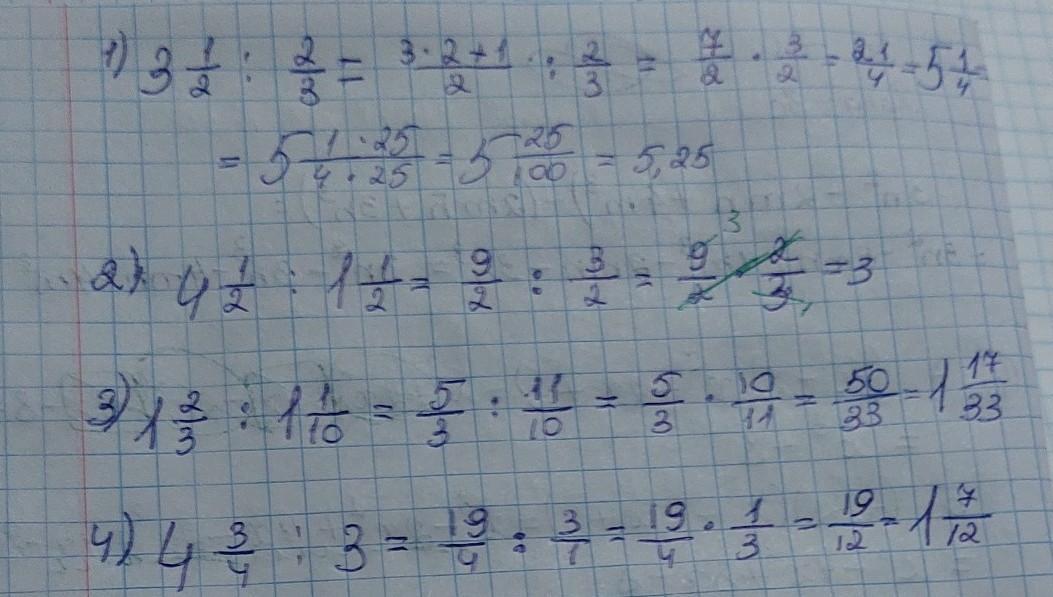 1) 3 1/2 : 2/3 = 3·2+1/2 : 2/3 = 7/2 · 3/2 = 21/4 = 5 1/4 =
= 5 1·25/4·25 = 5 25/100 = 5,25
2) 4 1/2 : 1 1/2 = 9/2 : 3/2 = 9/2 · 2/3 = 3
3) 1 2/3 : 1 1/10 = 5/3 : 11/10 = 5/3 · 10/11 = 50/33 = 1 17/33
4) 4 3/4 : 3 = 19/4 : 3/1 = 19/4 · 1/3 = 19/12 = 1 7/12